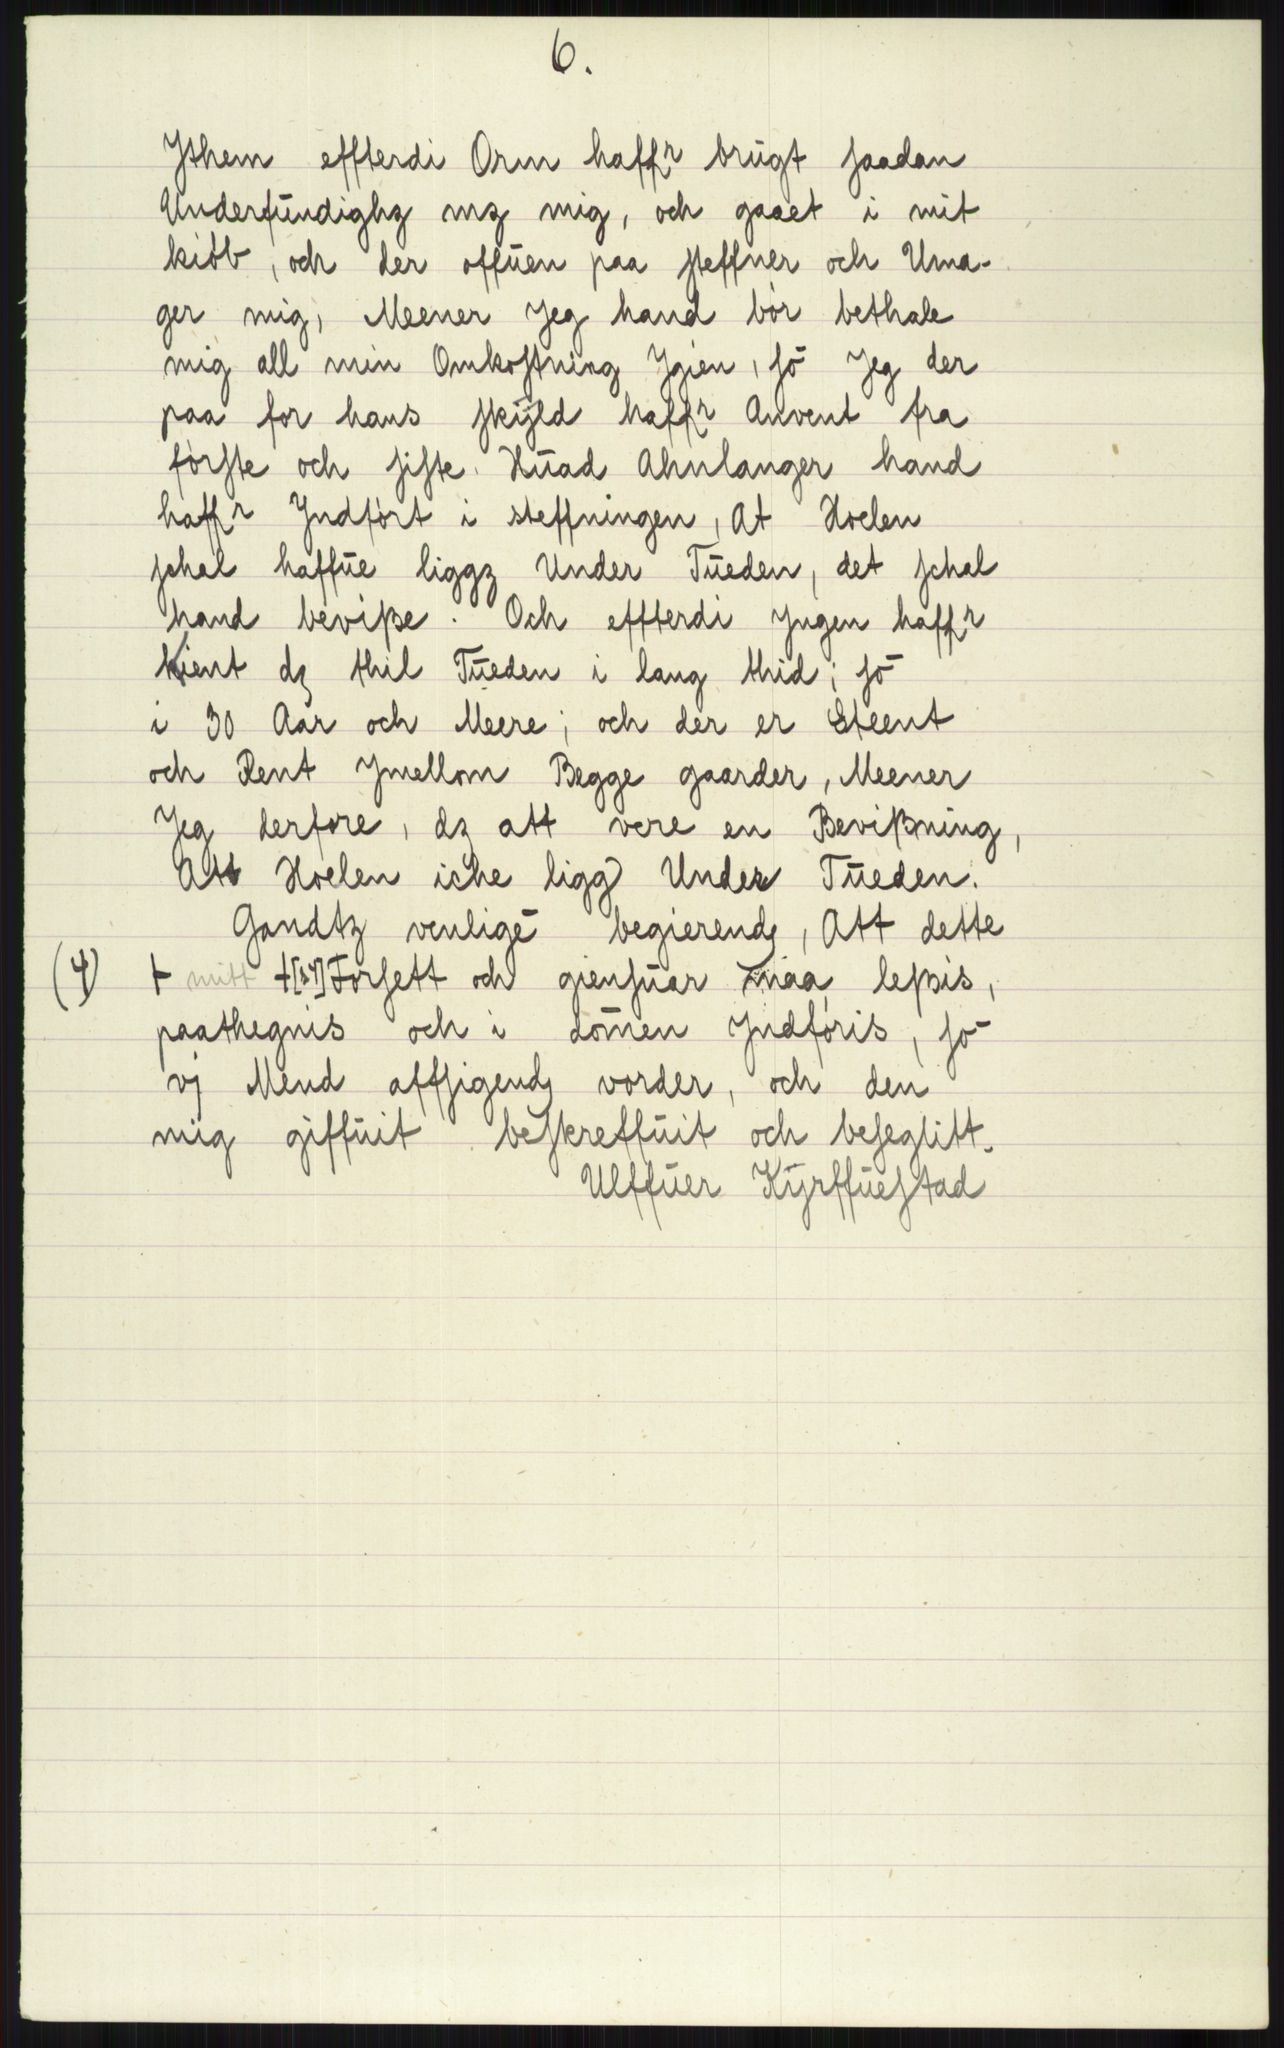 6.
Ithem effterdi Orm haffr brugt saadan
Underfundighz mz mig, och gaaet i mit
kiøb, och der offuen paa steffner och Uma-
ger mig, Meener Jeg hand bør bethale
mig all min Omkostning Igien, sō Jeg der
paa for hans skyld haffr Anvent fra
første och siste. Huad Ahnlanger hand
haffr Indført i steffningen, At Hoelen
schal haffue liggz Under Tueden, det schal
hand bevisse. Och effterdi Ingen haffr
kient dz thil Tueden i lang thid; sō
i 30 Aar och Meere; och der er Steent
och Rent Imellom Begge gaarder, Meener
Jeg derfore, dz att vere en Bevissning,
Att Hoelen iche ligg Under Tueden.
Gandtz venligē begierendz, Att dette
(4) + mitt +[sy] Forsett och giensuar maa lessis,
paathegnis och i dōmen Indføris, sō
vj Mend affsigendz vorder, och den
mig giffuit beskreffuit och beseglitt.
Ulffuer Kyrffuestad